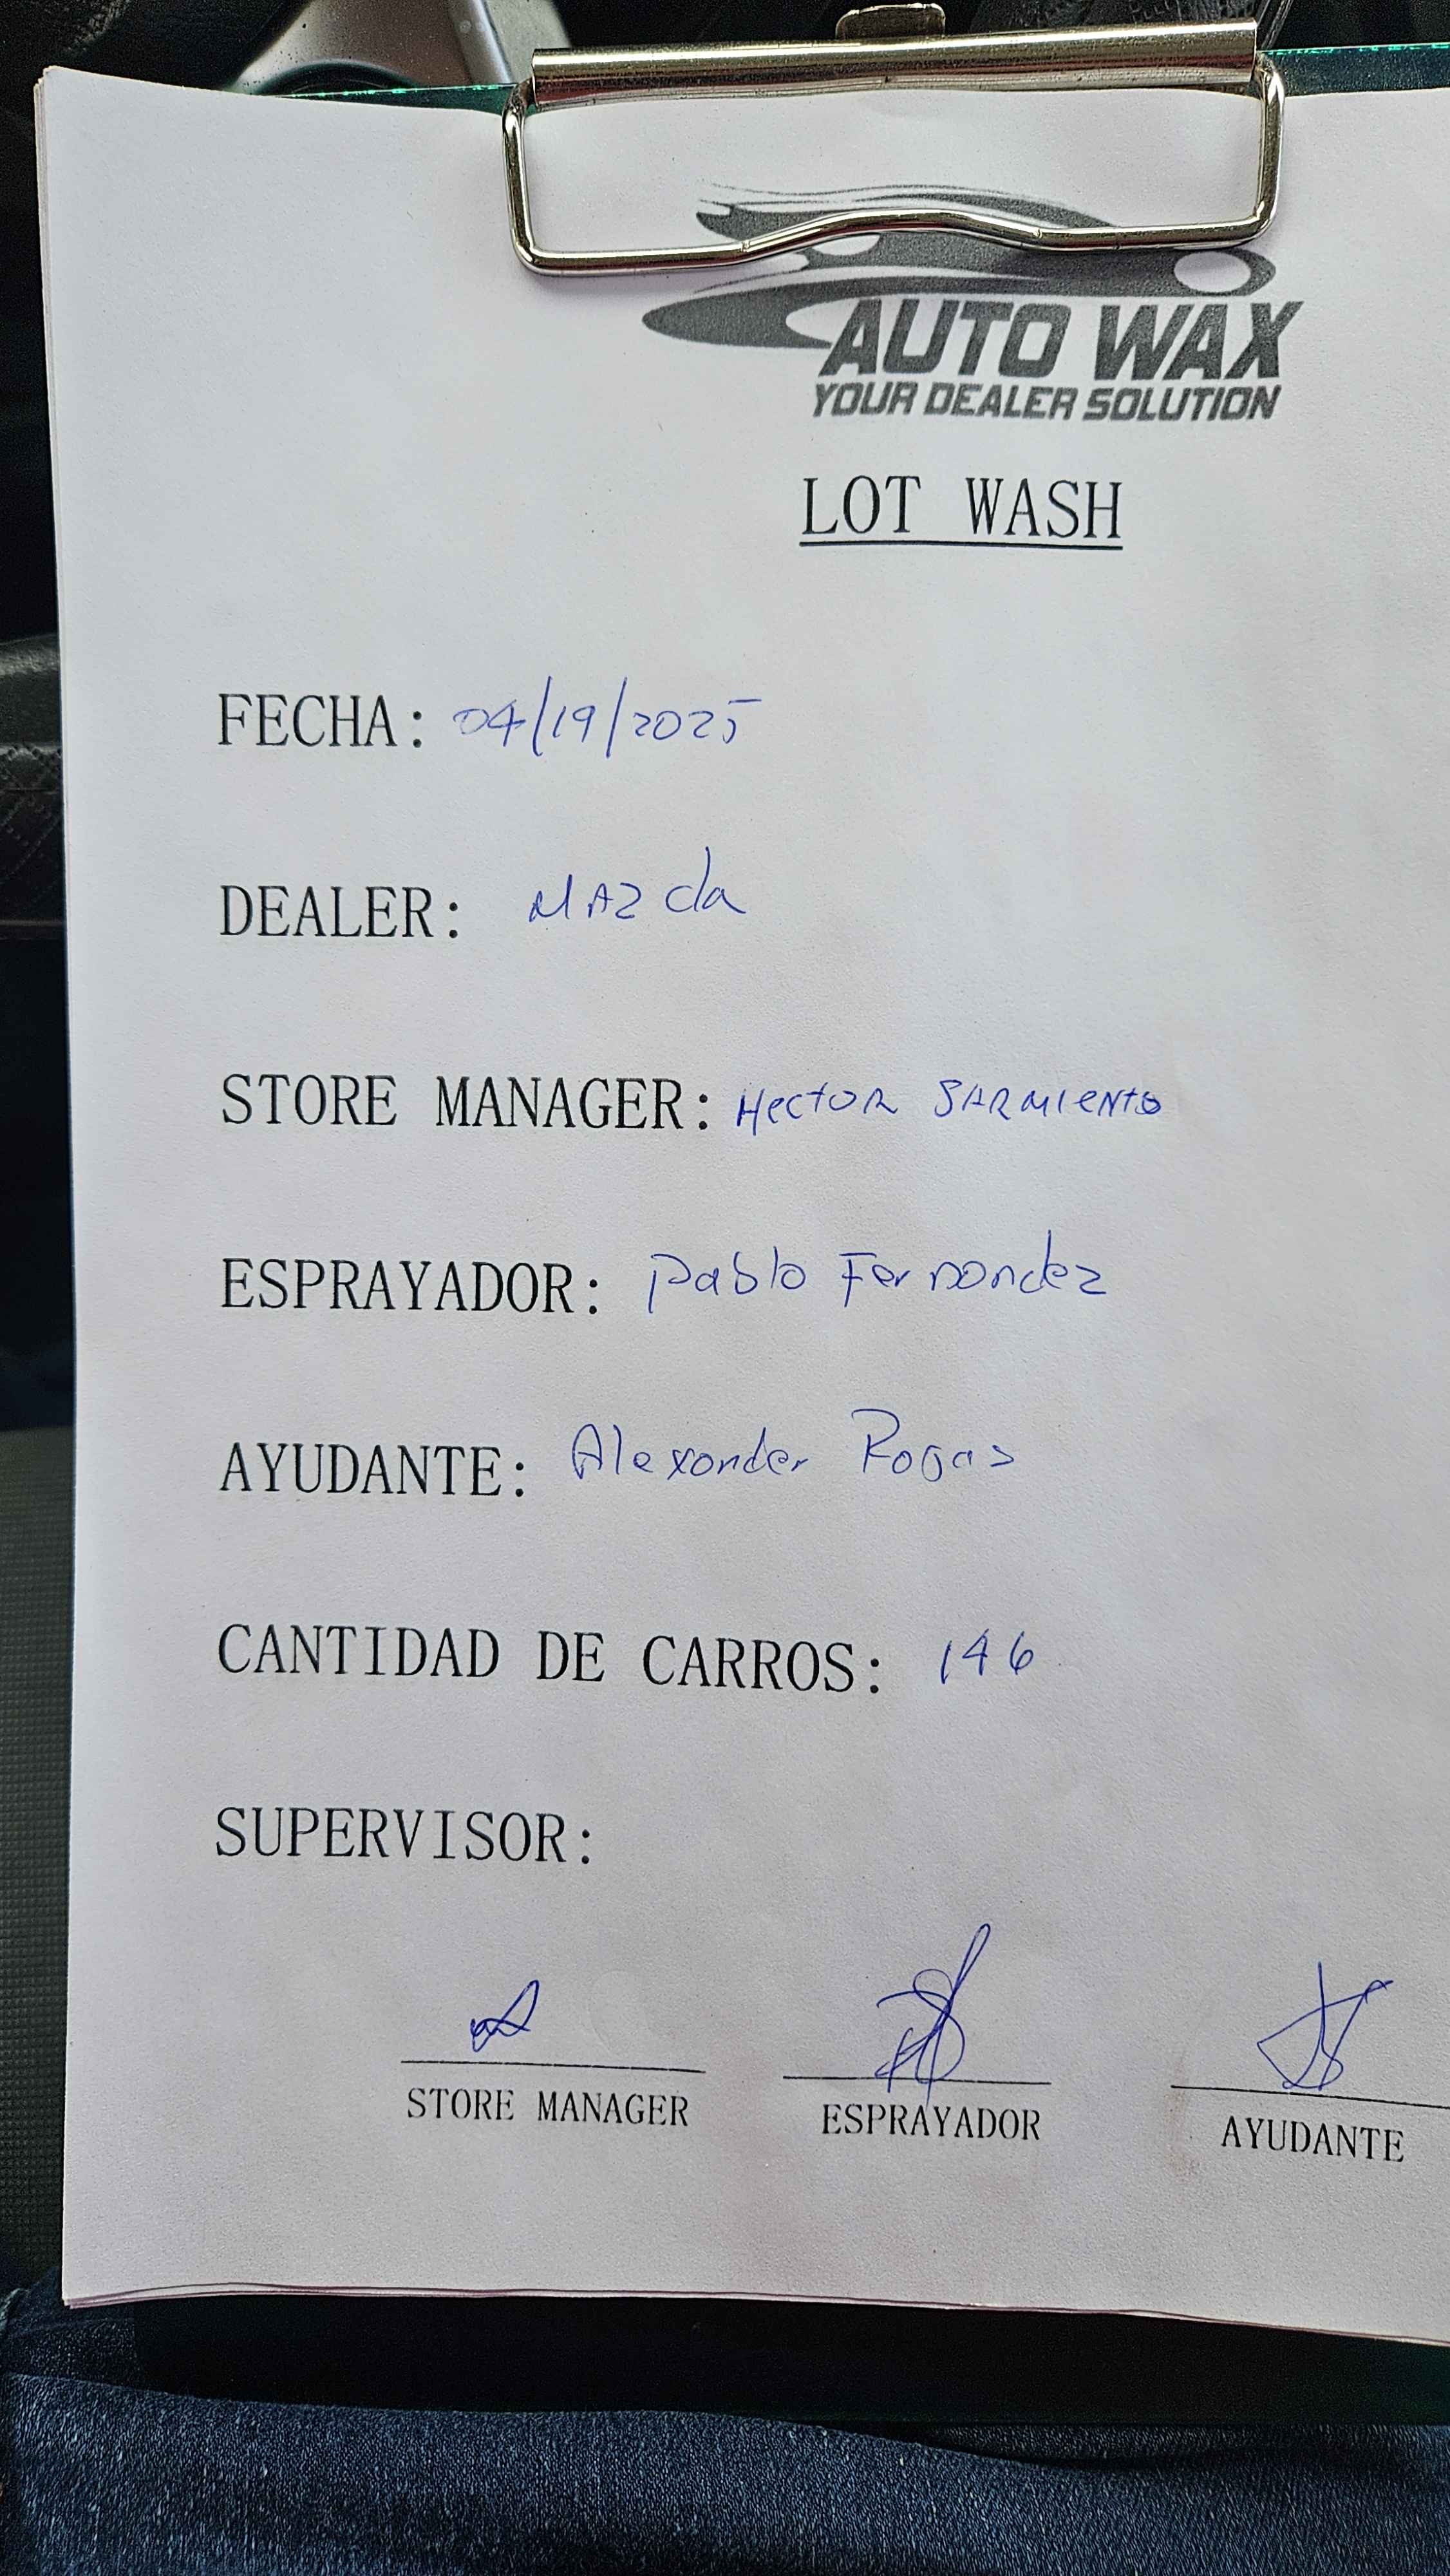 AUTO WAX
YOUR DEALER SOLUTION
LOT WASH
FECHA: 04/19/2025
DEALER: MAZda
STORE MANAGER: HectoR SARMIeNTO
ESPRAYADOR: Pablo Fernondez
AYUDANTE: Alexonder Rogas
CANTIDAD DE CARROS: 146
SUPERVISOR:
STORE MANAGER ESPRAYADOR AYUDANTE